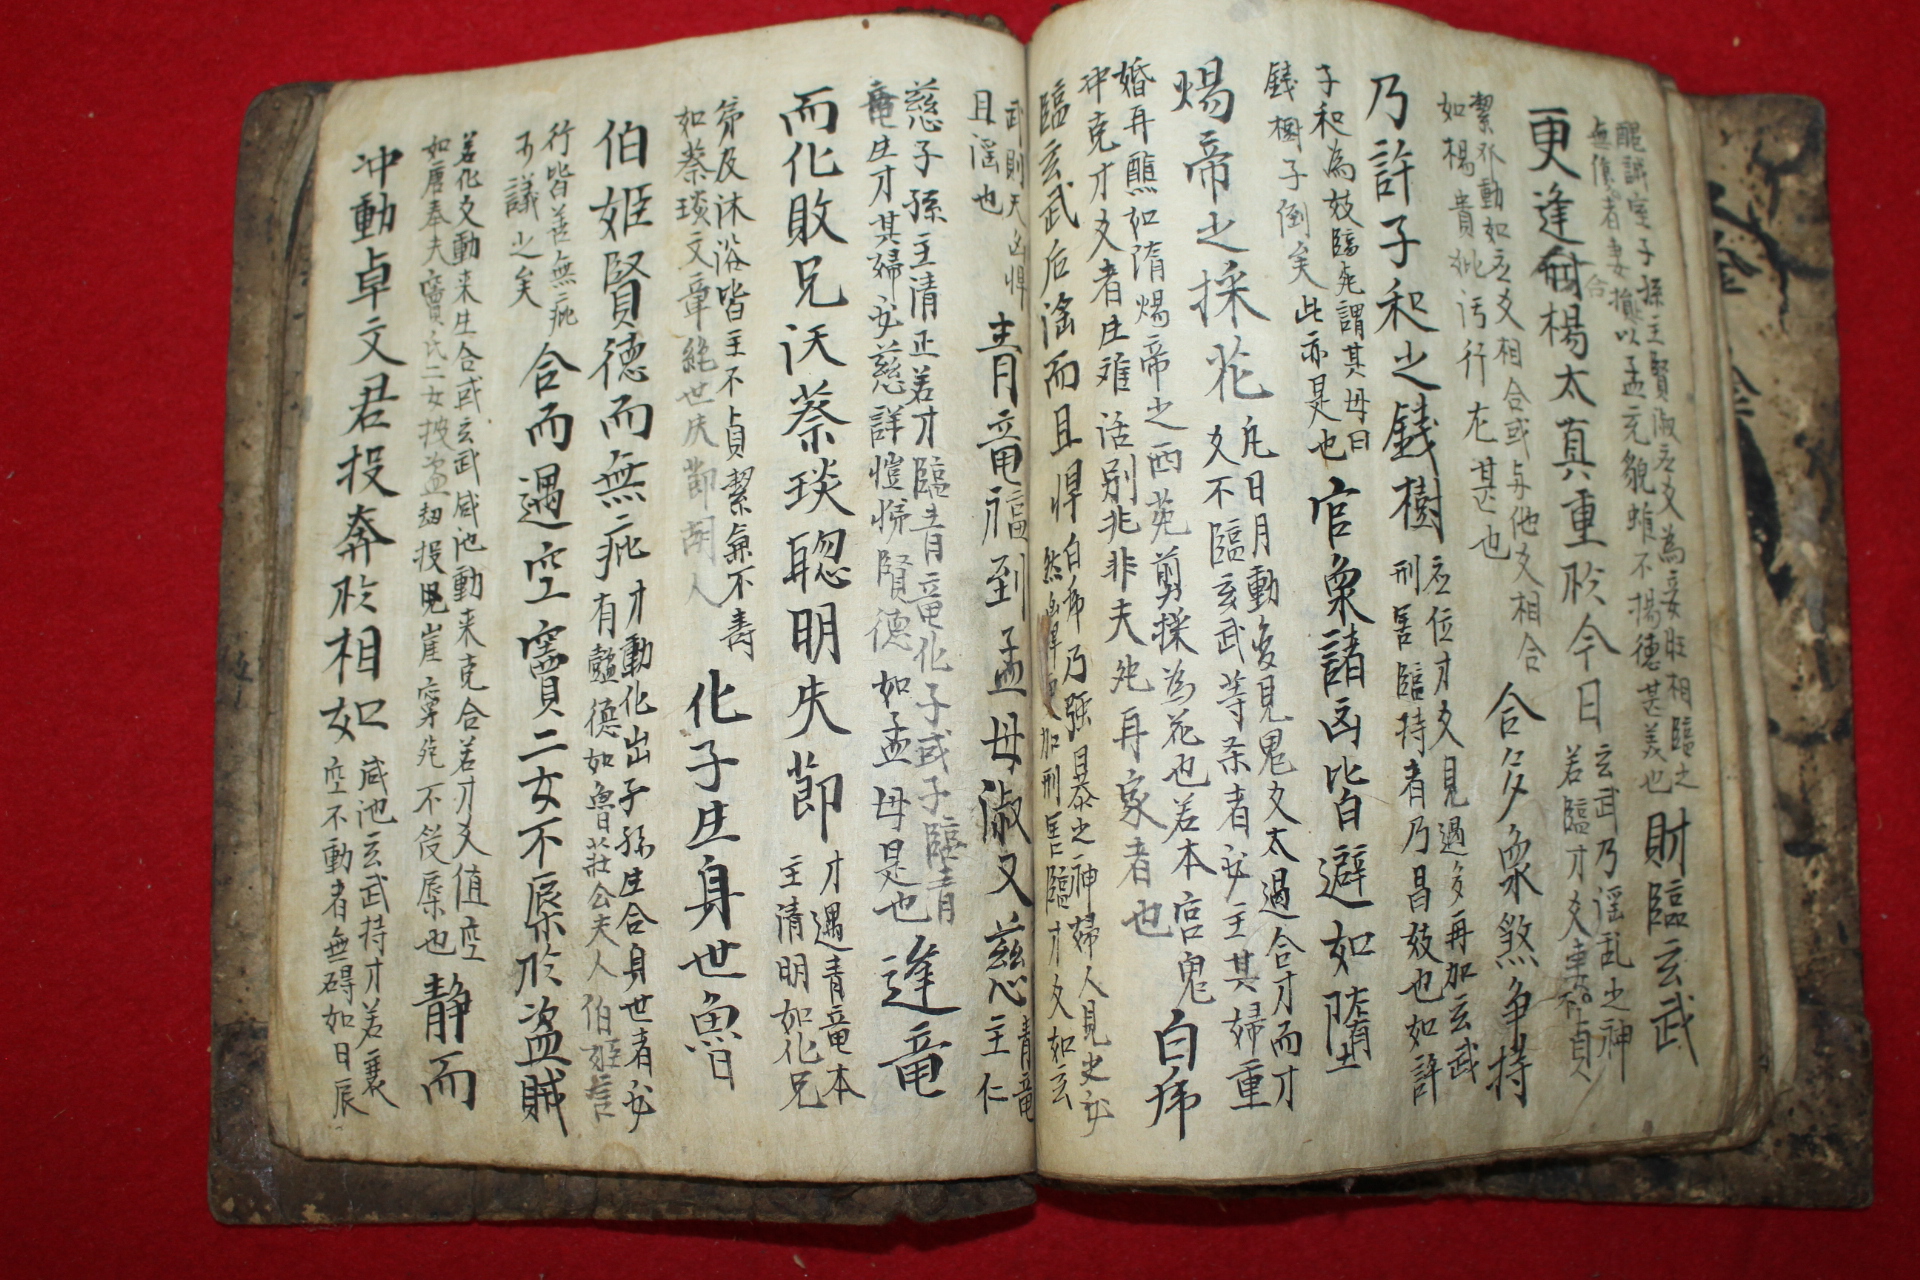 醜誠室子孫主賢淑应爻為妻旺相臨之
無儀者妻擔以孟光貌雖不揚德甚美也
財臨玄武
更逢耐楊太真重於今日
玄武乃谣乱之神
若臨才爻妻不貞
絜外動如应爻相合或与他爻相合
如楊貴妃污行尤甚也
合多象煞争持
乃許子和之錢樹
应位才爻見過多再加玄武
刑害臨持者乃昌妓也如許
子和為妓臨死謂其母曰
錢樹子倒矣此亦是也
官象諸凶皆避如隋
煬帝之採花
凡日月動爻見鬼爻太過合才而才
爻不臨玄武等杀者必主其婦重
婚再醮如隋煬帝之西苑剪採為花也若本宮鬼
冲克才爻者庄难活別非夫死再家者也
白虎
臨玄武后滛而且悍
白虎乃强暴之神婦人見史必
然凶悍加刑害臨才爻如玄
武則天凶悍
且滛也
青竜福到孟母淑又慈
青竜
主仁
慈子孫主清正若才臨青竜化子或子臨青
竜庄才其婦必慈詳愷悌賢德如孟母是也
逢竜
而化敗兄沃蔡琰聡明失節
才遇青竜本
主清明如化兄
第及沐浴皆主不貞絜兼不壽
如蔡琰文章絶世失節胡人
化子庄身世魯曰
伯姬賢德而無疵
才動化出子孫生合身世者必
有懿德如魯莊公夫人伯姬言
行皆善無疵
可議之矣
合而遇空竇二女不辱於盗賊
若化爻動来生合或玄武咸池動来克合若才爻值空
如唐奉夫竇氏二女被盗刼投見崖穿死不辱也
静而
冲動卓文君投奔於相如
咸池玄武持才若衰
空不動者無碍如日辰